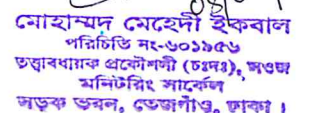 মোহাম্মদ মেহেদী ইকবাল
পরিচিতি নং-৬০১৯৫৬
তত্ত্বাবধায়ক প্রকৌশলী (চঃদঃ), সওজ
মনিটরিং সার্কেল
সড়ক ভবন, তেজগাঁও, ঢাকা।